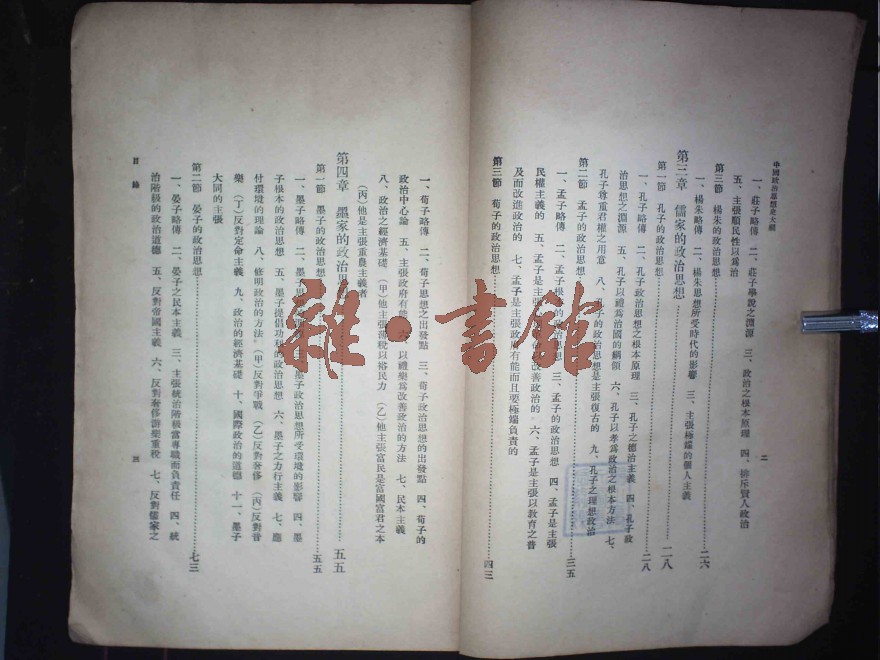 中國政治思想史大綱
二
一、莊子略傳　二、莊子學說之淵源　三、政治之根本原理　四、排斥賢人政治
五、主張順民性以爲治
第三節　楊朱的政治思想⋯⋯二六
一、楊朱略傳　二、楊朱思想所受時代的影響　三、主張極端的個人主義
第三章　儒家的政治思想⋯⋯二八
第一節　孔子的政治思想⋯⋯二八
一、孔子略傳　二、孔子的政治之根本原理　三、孔子之德治主義　四、孔子政
治思想之淵源　五、孔子以禮爲治國的綱領　六、孔子以孝爲政治之根本方法　七、
孔子尊重君權之用意　八、孔子的政治思想是主張復古的　九、孔子之理想政治
第二節　孟子的政治思想⋯⋯三五
一、孟子略傳　二、孟子根本的政治思想　三、孟子的政治思想　四、孟子是主張
民權主義的　五、孟子是主張改善政治的　六、孟子是主張以教育之普
及而改進政治的　七、孟子是主張政府有能而且要極端負責的
第三節　荀子的政治思想⋯⋯四三
一、荀子略傳　二、荀子思想之出發點　三、荀子政治思想的出發點　四、荀子的
政治中心論　五、主張政府有能　六、以禮樂爲改善政治的方法　七、民本主義
八、政治之經濟基礎　（甲）他主張薄稅以裕民力　（乙）他主張富民是富國富君之本
（丙）他是主張重農主義者
第四章　墨家的政治思想⋯⋯五五
第一節　墨子的政治思想⋯⋯五五
一、墨子略傳　二、墨子思想　墨子政治思想所受環境的影響　四、墨
子根本的政治思想　五、墨子提倡功利的政治思想　六、墨子之力行主義　七、應
付環境的理論　八、修明政治的方法　（甲）反對爭戰　（乙）反對奢侈　（丙）反對音
樂　（丁）反對定命主義　九、政治的經濟基礎　十、國際政治的道德　十一、墨子
大同的主張
第二節　晏子的政治思想⋯⋯七三
一、晏子略傳　二、晏子之民本主義　三、主張統治階級當專職而負責任　四、統
治階級的政治道德　五、反對帝國主義　六、反對奢侈游樂重稅　七、反對儒家之
目錄
三
雜·書館